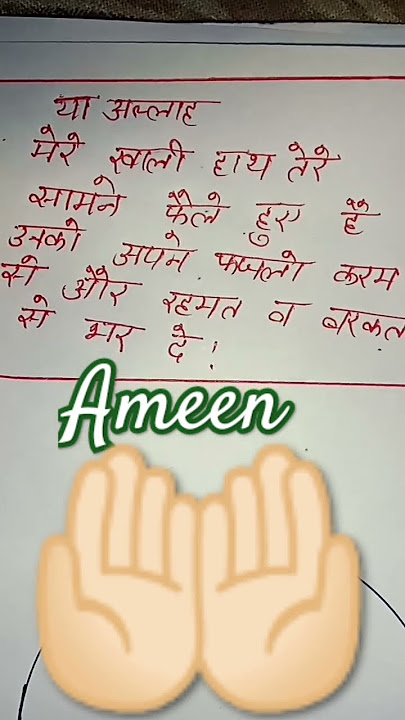 या अल्लाह
मेरे खाली हाथ तेरे
सामने फैले हुए है
उनको अपने फजलो करम
से और रहमत व बरकत
से भर दे!
Ameen